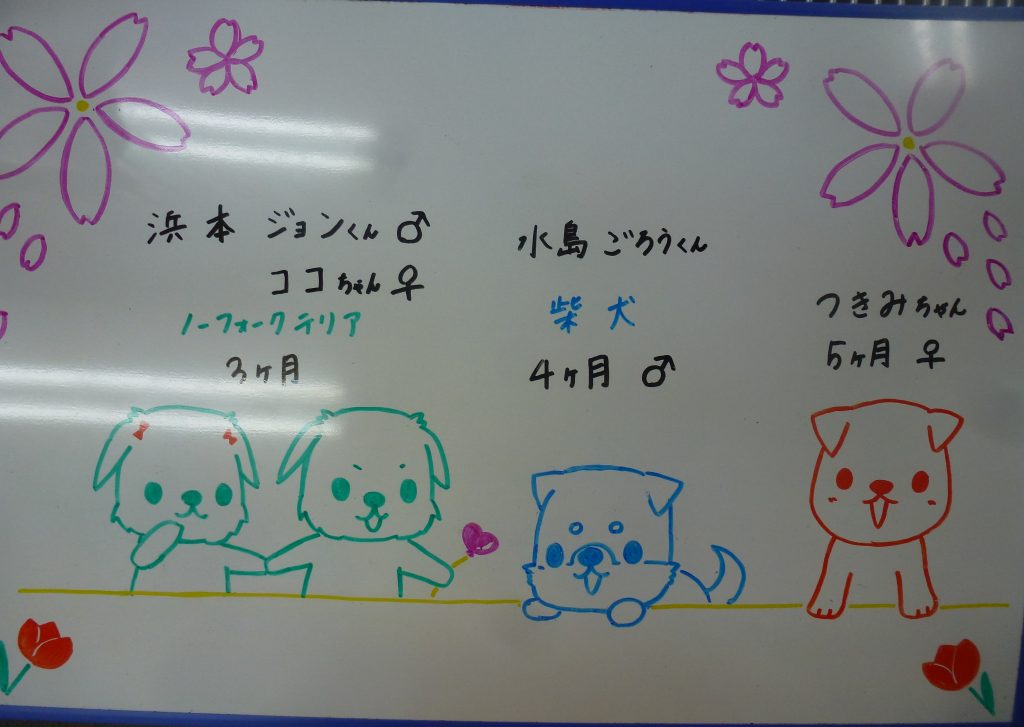 浜本 ジョンくん ♂
ココちゃん ♀
ノーフォークテリア
3ヶ月
水島 ごろうくん
柴犬
4ヶ月 ♂
つきみちゃん
5ヶ月 ♀